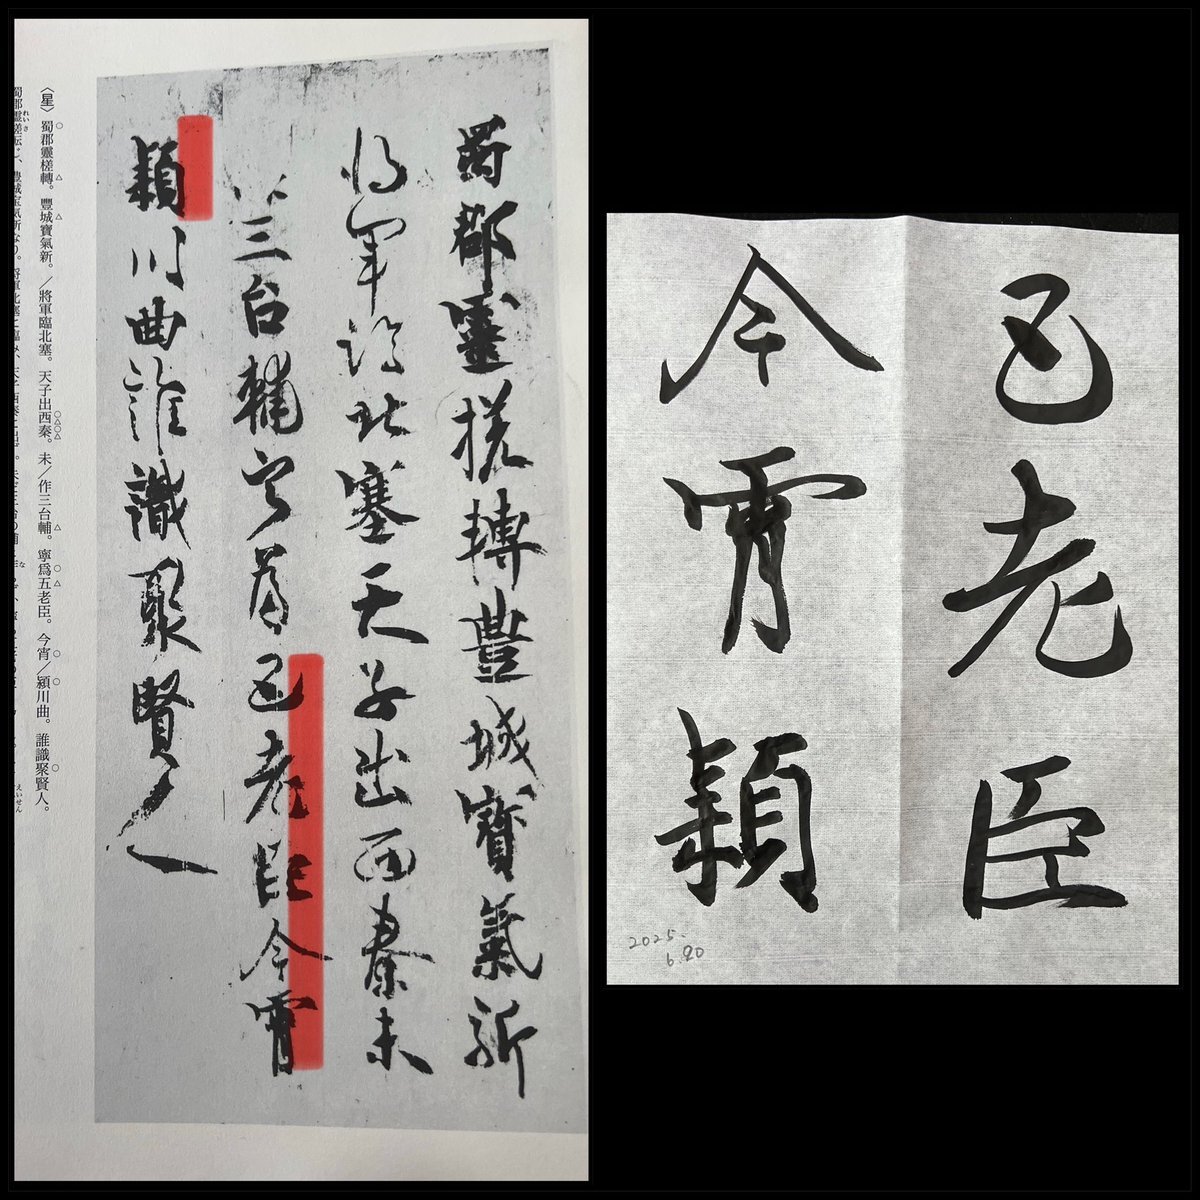 蜀郡靈槎轉豊城寶氣新
将軍臨北塞天子出西秦未
作三台輔寧爲五老臣今宵
穎川曲誰識聚賢人
〈星〉蜀郡靈槎轉。豐城寶氣新。／將軍臨北塞。天子出西秦。未／作三台輔。寧爲五老臣。今宵／穎川曲。誰識聚賢人。
蜀郡霊槎転じ、豊城宝気新なり。
えいせん
五老臣
今宵穎
2025.
6.20